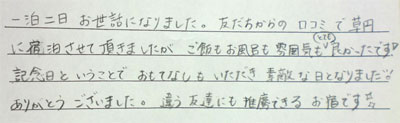 一泊二日 お世話になりました。友だちからの 口コミで 草円
に宿泊させて頂きましたが ご飯もお風呂も雰囲気も(とても)良かったです!
記念日ということで おもてなしも いただき 素敵な日となりました!!
ありがとう ございました。違う友達にも推薦できる お宿です☆☆